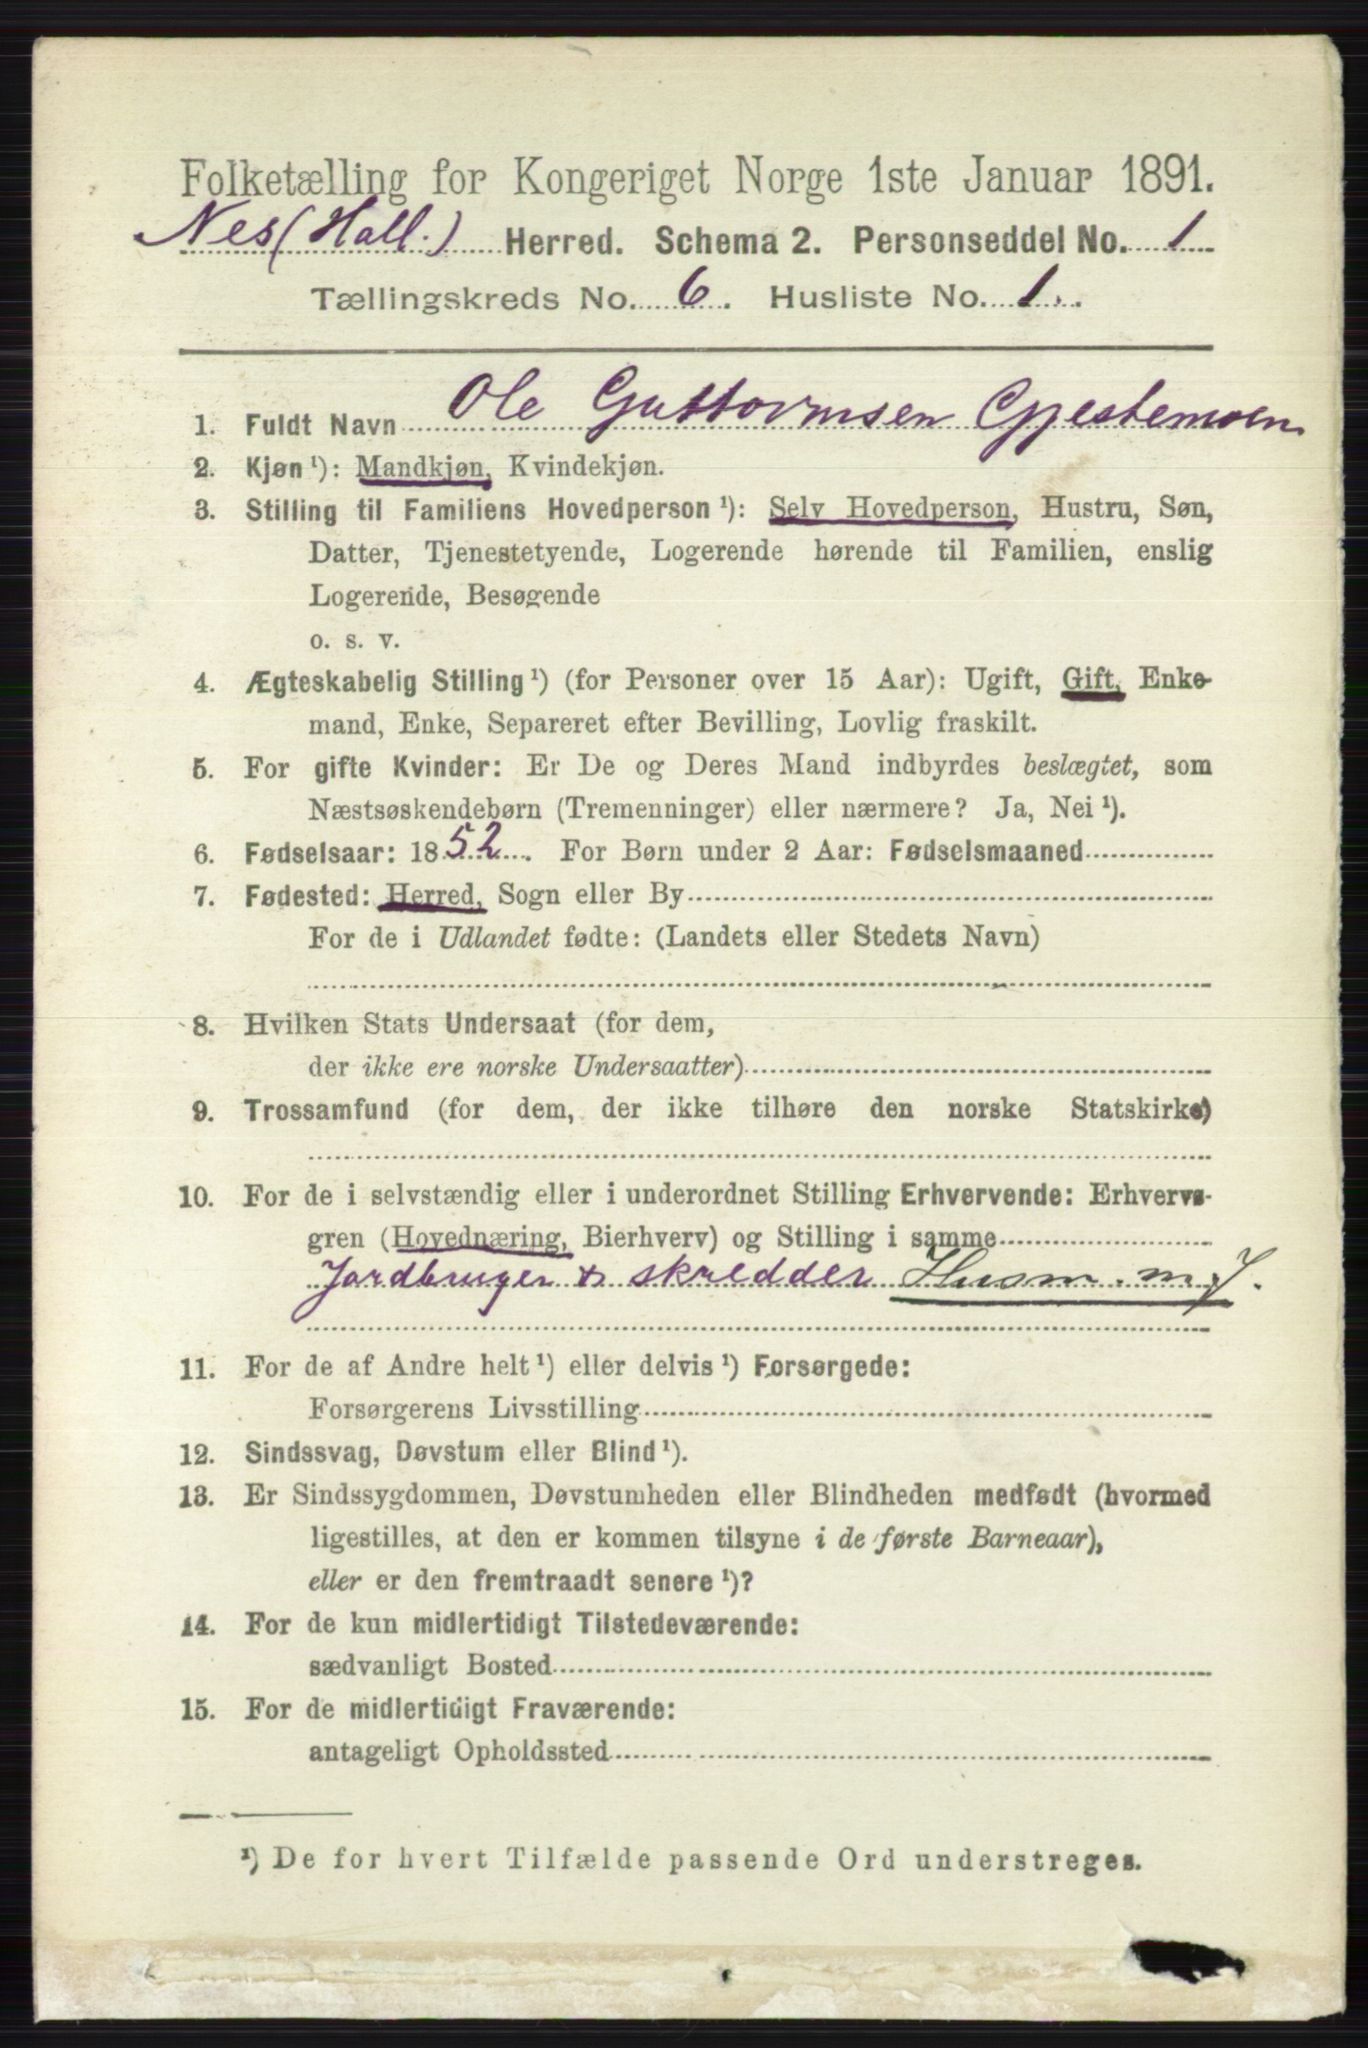 Folketælling for Kongeriget Norge 1ste Januar 1891.
Nes (Hall.) Herred. Schema 2. Personseddel No. 1
Tællingskreds No. 6. Husliste No. 1.
1. Fuldt Navn Ole Guttormsen Gjestemoen
2. Kjøn ¹): Mandkjøn, Kvindekjøn.
3. Stilling til Familiens Hovedperson ¹): Selv Hovedperson, Hustru, Søn,
Datter, Tjenestetyende, Logerende hørende til Familien, enslig
Logerende, Besøgende
o. s. v.
4. Ægteskabelig Stilling ¹) (for Personer over 15 Aar): Ugift, Gift, Enke-
mand, Enke, Separeret efter Bevilling, Lovlig fraskilt.
5. For gifte Kvinder: Er De og Deres Mand indbyrdes beslægtet, som
Næstsøskendebørn (Tremenninger) eller nærmere? Ja, Nei ¹).
6. Fødselsaar: 1852. For Børn under 2 Aar: Fødselsmaaned
7. Fødested: Herred, Sogn eller By
For de i Udlandet fødte: (Landets eller Stedets Navn)
8. Hvilken Stats Undersaat (for dem,
der ikke ere norske Undersaatter)
9. Trossamfund (for dem, der ikke tilhøre den norske Statskirke)
10. For de i selvstændig eller i underordnet Stilling Erhvervende: Erhvervs-
gren (Hovednæring, Bierhverv) og Stilling i samme
Jordbruger & skredder Husm. m. J.
11. For de af Andre helt ¹) eller delvis ¹) Forsørgede:
Forsørgerens Livsstilling
12. Sindssvag, Døvstum eller Blind ¹).
13. Er Sindssygdommen, Døvstumheden eller Blindheden medfødt (hvormed
ligestilles, at den er kommen tilsyne i de første Barneaar),
eller er den fremtraadt senere ¹)?
14. For de kun midlertidigt Tilstedeværende:
sædvanligt Bosted
15. For de midlertidigt Fraværende:
antageligt Opholdssted
¹) De for hvert Tilfælde passende Ord understreges.